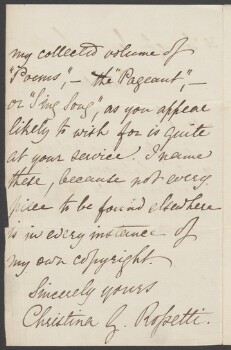 my collected volume of
"Poems", – the "Pageant", –
or "Sing Song", as you appear
likely to wish for is quite
at your service. I name
these, because not every
piece to be found elsewhere
is in every instance of
my own copyright.
Sincerely yours
Christina G. Rossetti.